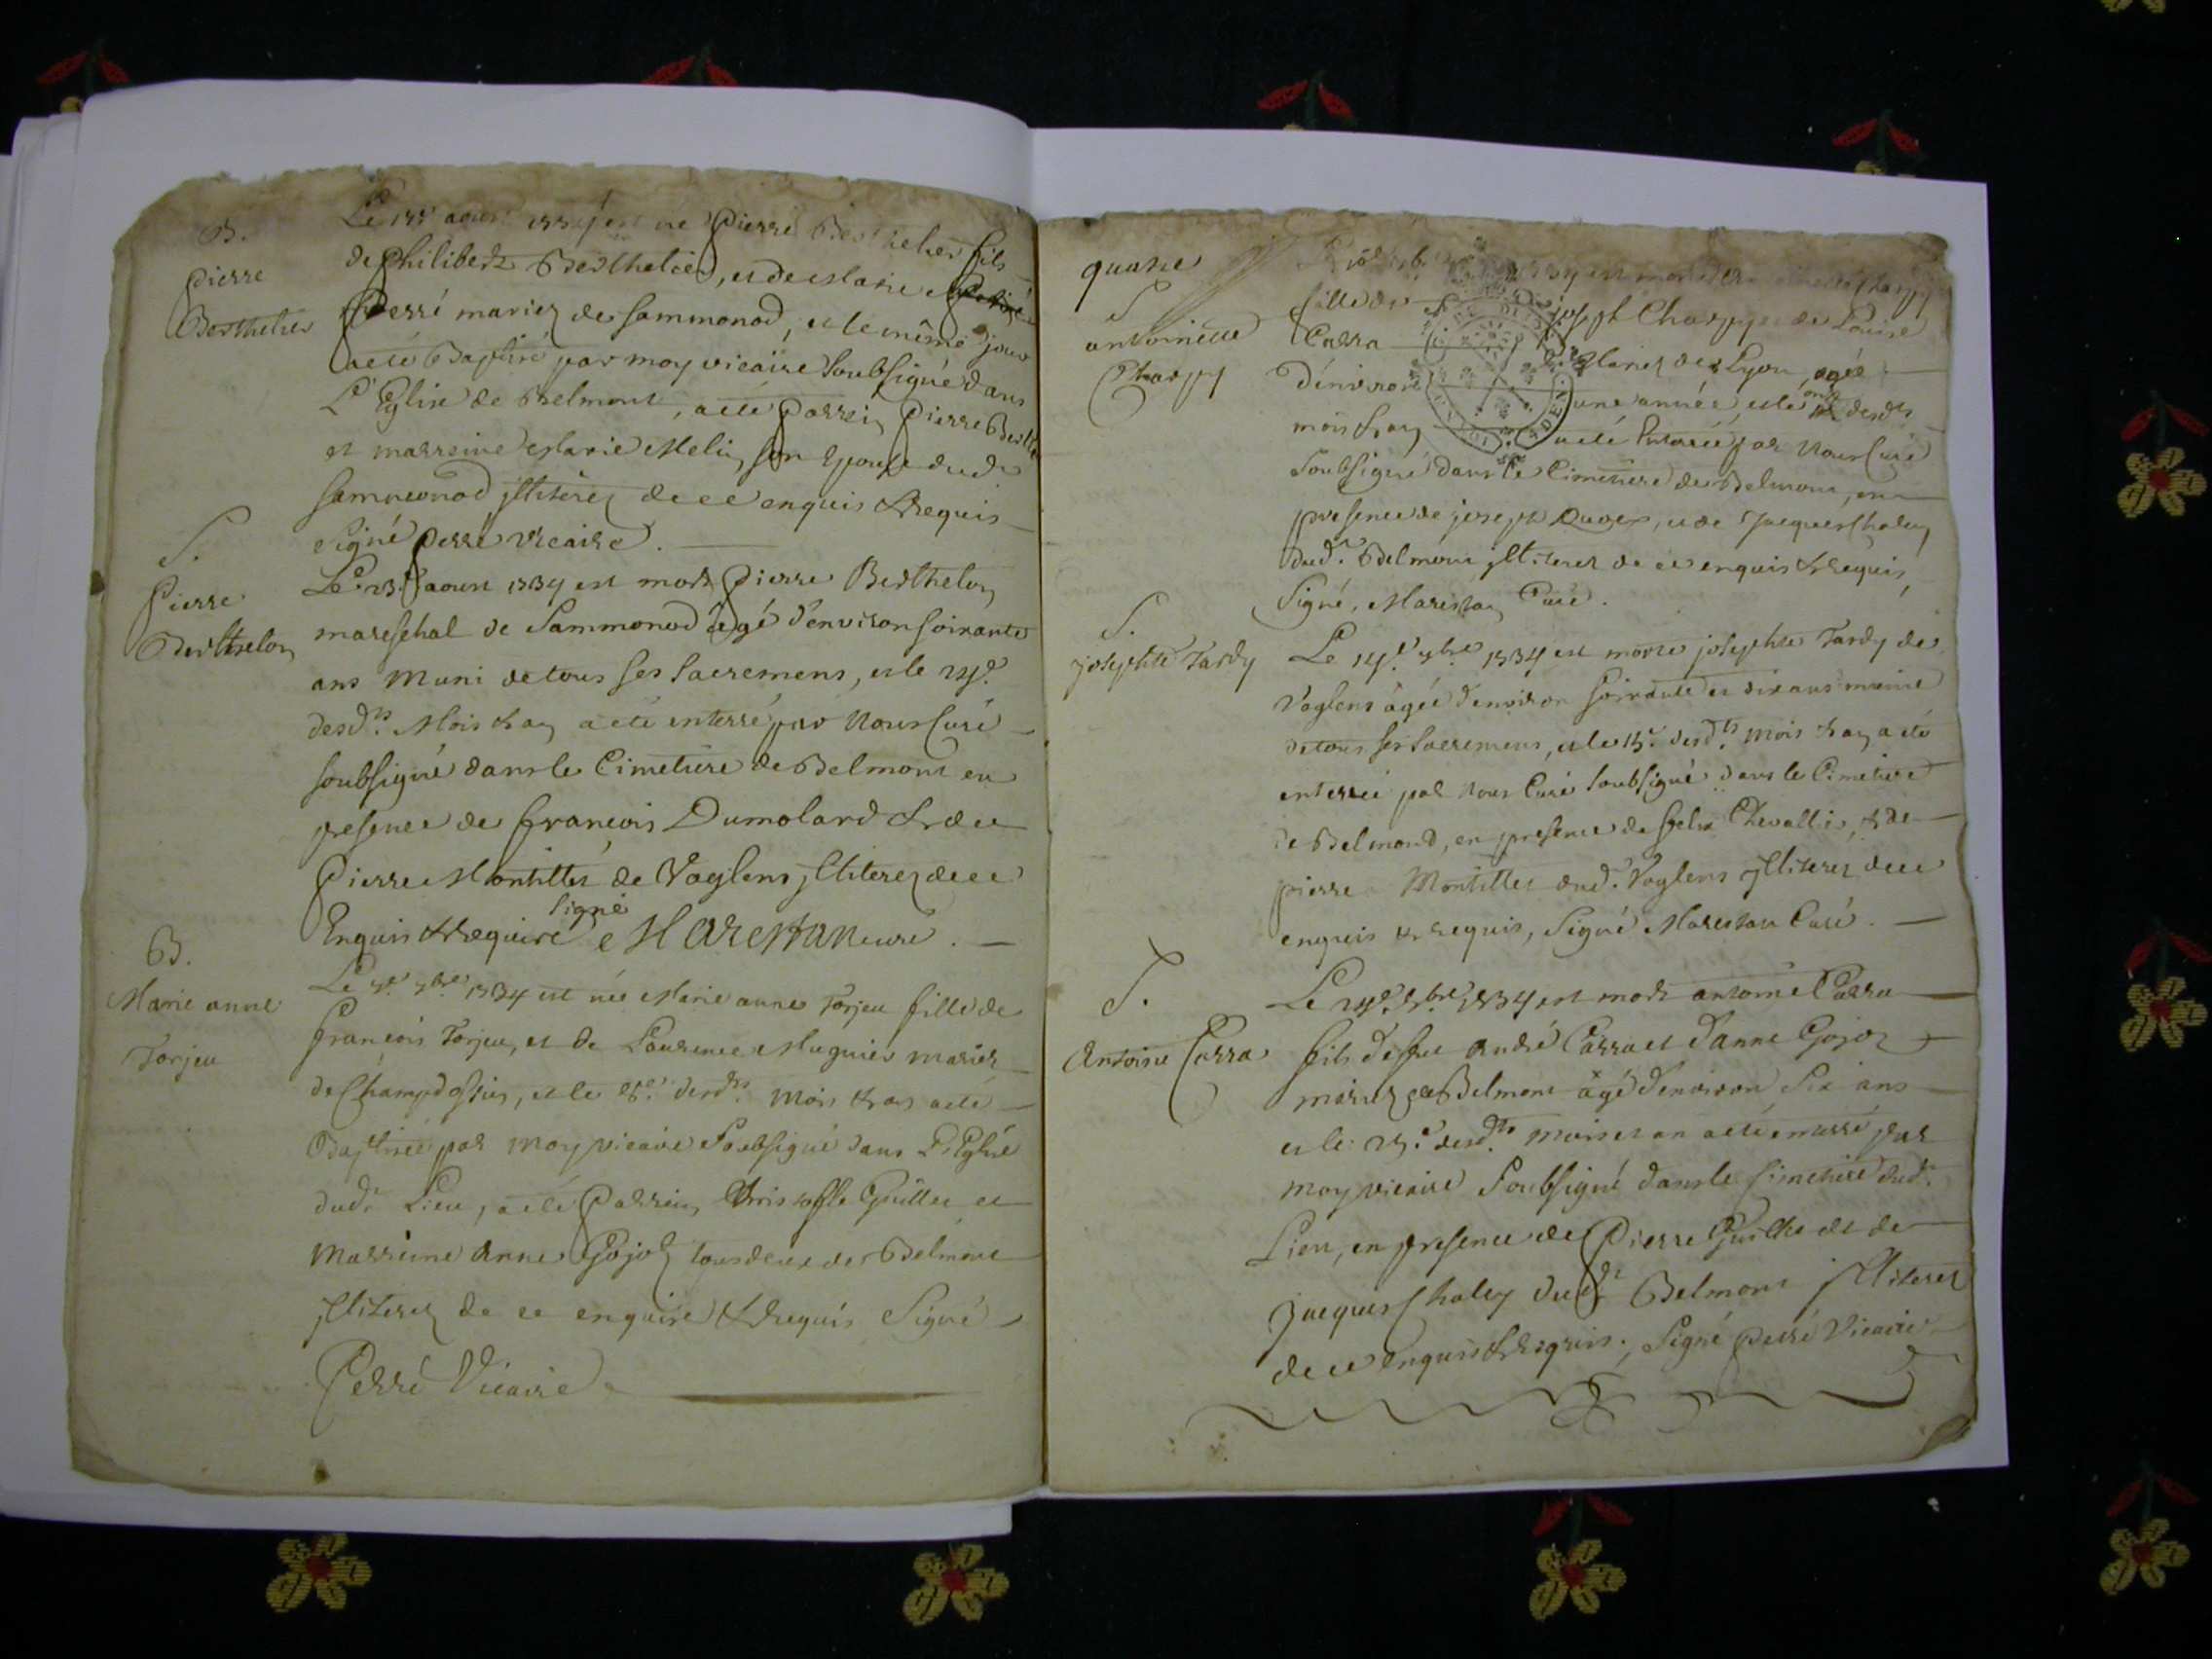 B.
Pierre
Berthelier
aoust 1734 est né Pierre Berthelier fils
de Philibert Berthelier, et de Marie
Perré mariez de Sammonod, et le même jour
a eté Baptisé par moy vicaire soubsigné dans
L'Eglise de Belmont, a eté Parrein Pierre
et marreine Marie Melin son Epouse dud.
Sammonod jlliterez de ce enquis & requis
signé Perré vicaire.
S.
Pierre
Berthelon
Le 23e aoust 1734 est mort Pierre Berthelon
mareschal de Sammonod âgé d'environ soixante
ans Muni de tous ses sacremens, et le 24e.
desdts. Mois & an a eté enterré par Nous Curé
soubsigné dans le Cimetiere de Belmont en
presence de francois Dumolard & de
Pierre Montillet de Voglens jlliterez de ce
Enquis & requis signé Marestan curé.
B.
Marie anne
Torjeu
Le 7e. 7bre. 1734 est née Marie anne Torjeu fille de
francois Torjeu, et de Laurence Muguier mariez
de Champdossin, et le 8e. desdts. Mois & an a eté
Baptisée par moy vicaire soubsigné dans L'Eglise
dud. Lieu, a eté Parrein Christoffle Guillet et
Marreine Anne Gojoz tous deux de Belmont
jlliterez de ce enquis & requis Signé
Perré Vicaire
quatre
S
antoinette
Charppy
1734 est morte
fille de joseph Charppy et de Louise
Carra mariez de Lyon, agée
d'environ une année, et le onze desdts
mois & an a eté Enterrée par Nous Curé
soubsigné dans le Cimetiere de Belmont, en
presence de joseph, et de Jacques Chaley
dud. Belmont jlliterez de ce enquis & requis,
Signé, Marestan Curé.
S.
josephte Tardy
Le 14e. 7bre. 1734 est morte josephte Tardy de
Voglens âgée d'environ soixante et dix ans munie
de tous ses sacremens, et le 15e. desdts. mois & an a eté
enterrée par Nous Curé soubsigné dans le Cimetiere
de Belmond, en presence de felix Chevallier, & de
pierre Montillet dud. Voglens jlliterez de ce
enquis & requis, Signé Marestan Curé.
S.
Antoine Carra
Le 24e. 7bre. 1734 est mort antoine Carra
fils de feu André Carra et d'anne Gojoz
mariez de Belmont âgé d'environ six ans
et le 25e. desdts. mois et an a eté enterré par
moy vicaire soubsigné dans le Cimetiere dud.
Lieu, en presence de Pierre Guillet et de
Jacques Chaley dud. Belmont jlliterez
de ce enquis & requis. Signé Perré Vicaire